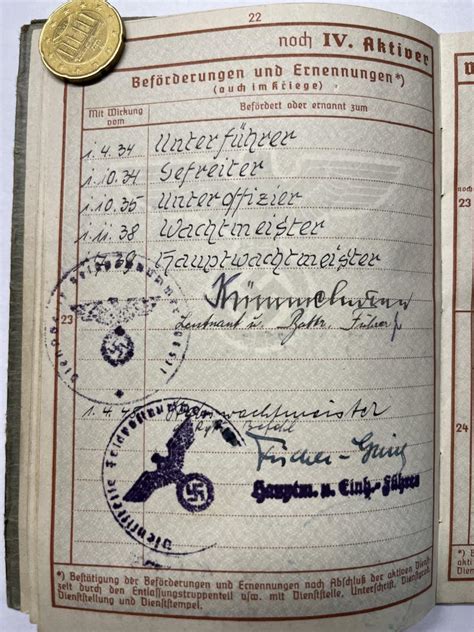 22
noch IV. Aktiver
Beförderungen und Ernennungen*)
(auch im Kriege)
Mit Wirkung vom
Befördert oder ernannt zum
1.4.34 Unterführer
1.10.34 Gefreiter
1.10.35 Unteroffizier
1.11.38 Wachtmeister
Hauptwachtmeister
Leutnant u. Battr. Führer
23
1.4.4
wachtmeister
Fischer-
Hauptm. u. Einh.-Führer
Dienststelle Feldpostnummer
*) Bestätigung der Beförderungen und Ernennungen nach Abschluß der aktiven Dienst-
zeit durch den Entlassungstruppenteil usw. mit Dienststelle, Unterschrift, Dienstgrad,
Dienststellung und Dienststempel.
noch
23
24